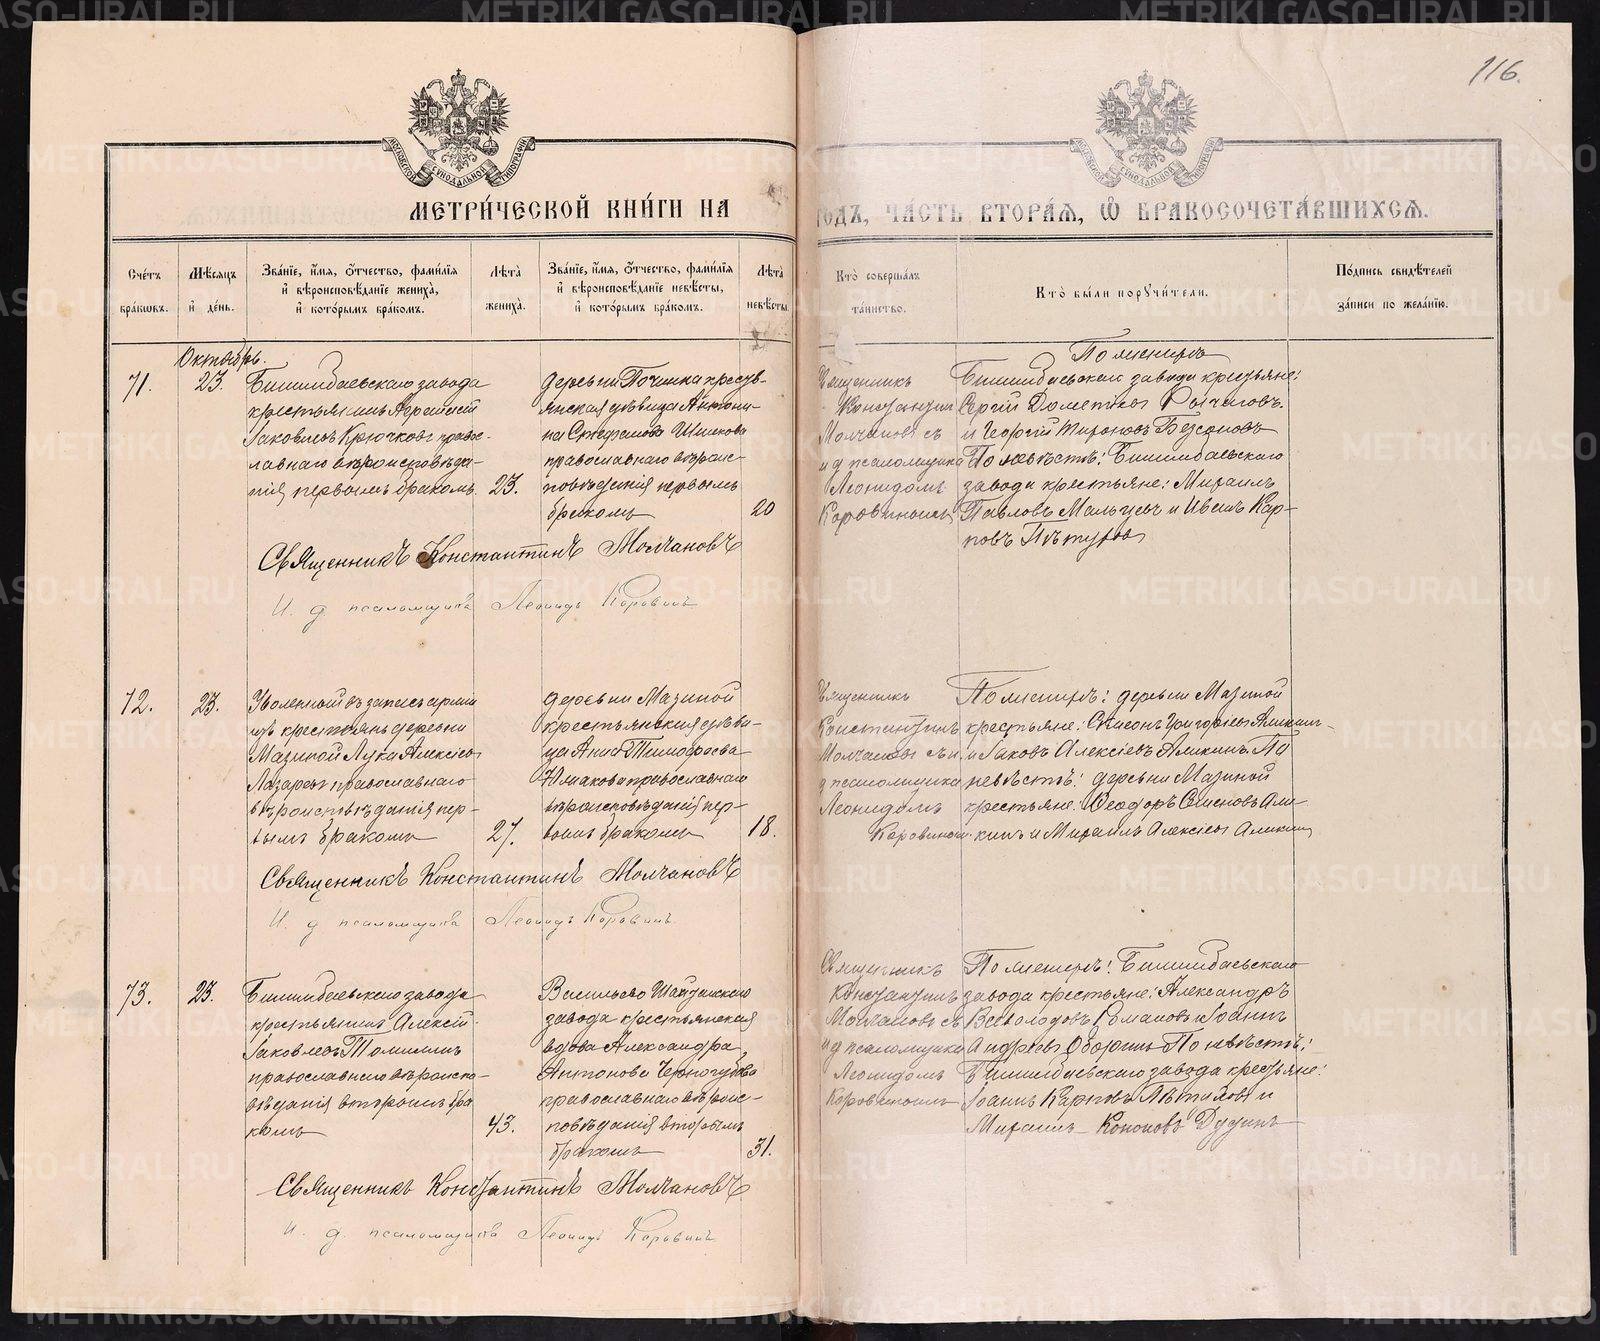 116.
МОСКОВСКОЙ СѴНОДАЛЬНОЙ ТИПОГРАФІИ
МЕТРИ́ЧЕСКОЙ КНИ́ГИ НА ГОДЪ, ЧА́СТЬ ВТОРА́Я, Ѽ БРАКОСОЧЕТА́ВШИХСЯ.
Счётъ бра́ковъ.
Мѣ́сяцъ и де́нь.
Зва́нїе, и́мя, о́тчество, фами́лїя и вѣроисповѣ́данїе жениха̀, и кото́рымъ бра́комъ.
Лѣ́та жениха̀.
Зва́нїе, и́мя, о́тчество, фами́лїя и вѣроисповѣ́данїе невѣ́сты, и кото́рымъ бра́комъ.
Лѣ́та невѣ́сты.
Кто̀ соверша́лъ та́инство.
Кто̀ бы́ли поручи́тели.
По́дпись свидѣ́телей за́писи по жела́нїю.
Октябрь.
71.
23.
Билимбаевскаго завода
крестьянинъ
Іаковлевъ Крючковъ правос-
лавнаго вѣроисповѣда-
нія первымъ бракомъ
23.
деревни Починка кресть-
янская дѣвица Антони-
на Стефанова
православнаго вѣроис-
повѣданія первымъ
бракомъ
20
Священникъ
Константин
Молчановъ съ
и д псаломщика
Леонидомъ
Коровинымъ
По женихѣ
Билимбаевскаго завода крестьяне:
Сергій Дометіевъ
и Георгій Мироновъ Безсоновъ
По невѣстѣ: Билимбаевскаго
завода крестьяне: Михаилъ
Павловъ Мальцевъ и Иванъ Кар-
повъ
Священникъ Константинъ Молчановъ
И. д псаломщика Леонидъ Коровинъ
72.
23.
Уволенный въ запасъ арміи
изъ крестьянъ деревни
Мазиной Лука Алексіевъ
Лазаревъ православнаго
вѣроисповѣданія пер-
вымъ бракомъ
27.
деревни Мазиной
крестьянская дѣви-
ца Анна Тимофеева
православнаго
вѣроисповѣданія пер-
вымъ бракомъ
18.
Священникъ
Константинъ
Молчановъ съ и
д псаломщика
Леонидомъ
Коровиным
По женихѣ: деревни Мазиной
крестьяне: Симеонъ Григорьевъ Аликин
и Іаковъ Алексіевъ Аликинъ По
невѣстѣ: деревни Мазиной
крестьяне: Ѳеодоръ Семеновъ Али-
кинъ и Михаилъ Алексіевъ Аликин
Священникъ Константинъ Молчановъ
И. д псаломщика Леонидъ Коровинъ
73.
23.
Билимбаевскаго завода
крестьянинъ Алексій
Іаковлевъ Томилинъ
православнаго вѣроиспо-
вѣданія вторымъ бра
комъ
43.
Васильево Шайтанскаго
завода крестьянская
вдова Александра
Антонова
православнаго вѣроис-
повѣданія вторымъ
бракомъ
31.
Священникъ
Константинъ
Молчановъ съ
и д псаломщика
Леонидомъ
Коровинымъ
По женихѣ: Билимбаевскаго
завода крестьяне: Александръ
Всеволодовъ Романовъ и Іоаннъ
Андреевъ Оборинъ По невѣстѣ:
Билимбаевскаго завода крестьяне:
Іоаннъ Карповъ и
Михаилъ Кононовъ Дудинъ
Священникъ Константинъ Молчановъ
И. д. псаломщика Леонидъ Коровинъ
METRIKI.GASO-URAL.RU